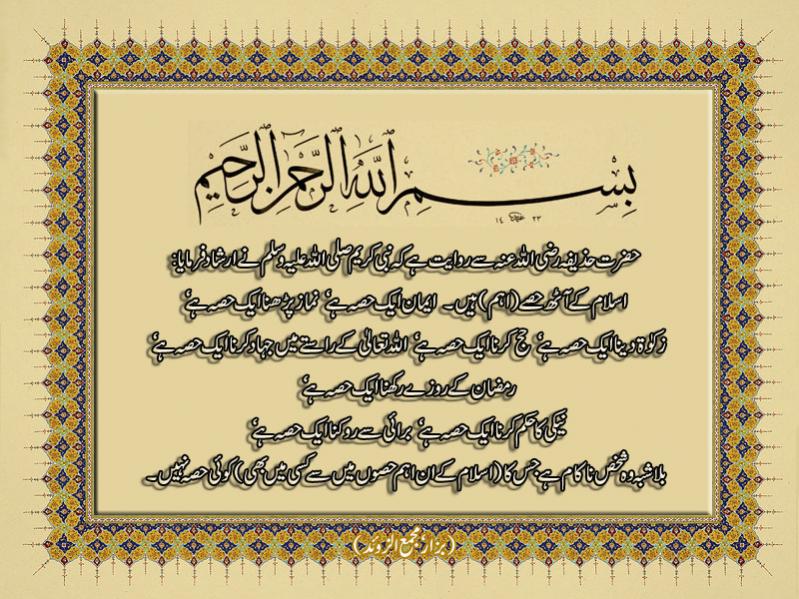 بِسْمِ اللهِ الرَّحْمٰنِ الرَّحِيْمِ
١٤ ٢٣
حضرت حذیفہ رضی اللہ عنہ سے روایت ہے کہ نبی کریم صلی اللہ علیہ وسلم نے ارشاد فرمایا:
اسلام کے آٹھ حصے (اہم) ہیں۔ ایمان ایک حصہ ہے، نماز پڑھنا ایک حصہ ہے،
زکوٰۃ دینا ایک حصہ ہے، حج کرنا ایک حصہ ہے، اللہ تعالیٰ کے راستے میں جہاد کرنا ایک حصہ ہے،
رمضان کے روزے رکھنا ایک حصہ ہے،
نیکی کا حکم کرنا ایک حصہ ہے، برائی سے روکنا ایک حصہ ہے،
بلاشبہ وہ شخص ناکام ہے جس کا (اسلام کے ان اہم حصوں میں سے کسی میں بھی) کوئی حصہ نہیں۔
(بزار، مجمع الزوئد)